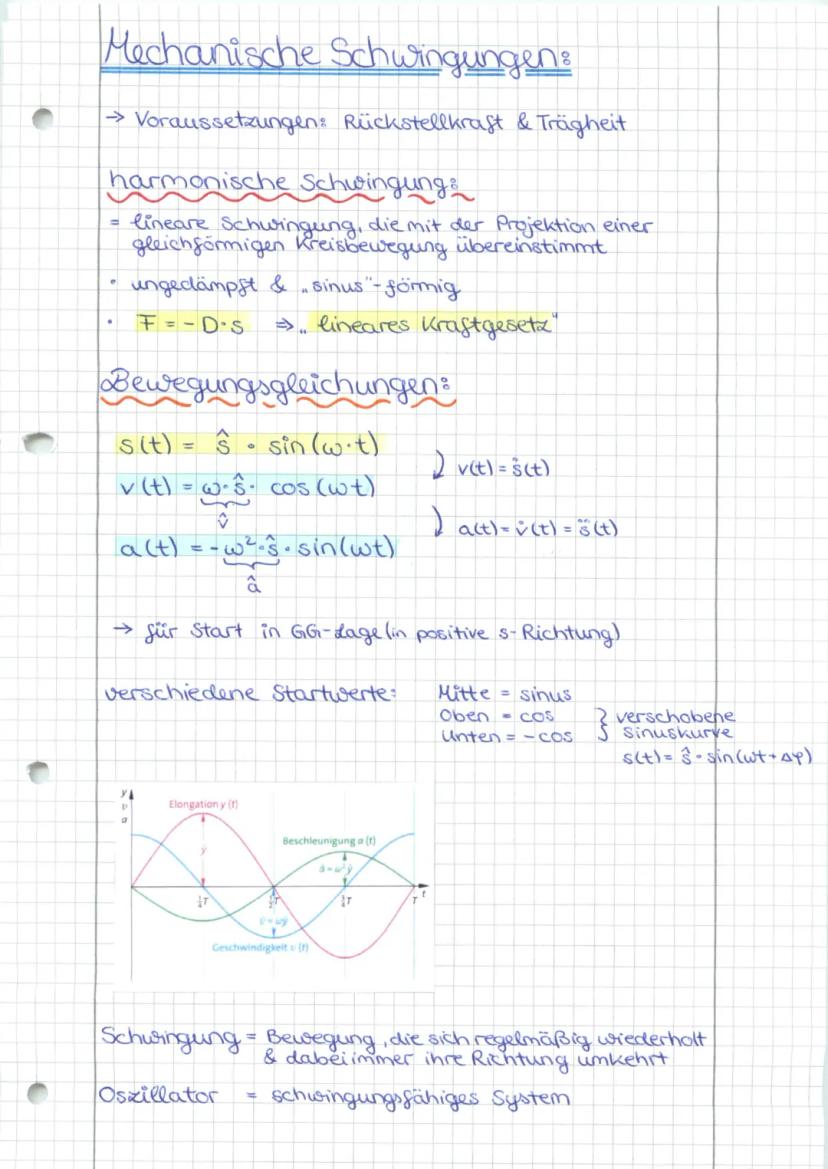 Mechanische Schwingungen:
→ Voraussetzungen: Rückstellkraft & Trägheit
harmonische Schwingung:
= lineare Schwingung, die mit der Projektion einer
gleichförmigen Kreisbewegung übereinstimmt
• ungedämpft & „sinus"-förmig
• F = - D·s ⇒ „lineares Kraftgesetz"
Bewegungsgleichungen:
s(t) = ŝ · sin(ω·t)
v(t) = ω·ŝ· cos(ωt)
v̂
v(t) = ṡ(t)
a(t) = -ω²·ŝ·sin(ωt)
â
a(t) = v̇(t) = s̈(t)
→ für Start in GG-Lage (in positive s-Richtung)
verschiedene Startwerte:
Mitte = sinus
Oben = cos
Unten = -cos
} verschobene
Sinuskurve
s(t) = ŝ · sin(ωt + Δφ)
y
v
a
Elongation y (t)
ŷ
Beschleunigung a (t)
â = ω²ŷ
¼T
½T
¾T
T
t
v̂ = ωŷ
Geschwindigkeit v (t)
Schwingung = Bewegung, die sich regelmäßig wiederholt
& dabei immer ihre Richtung umkehrt
Oszillator = schwingungsfähiges System